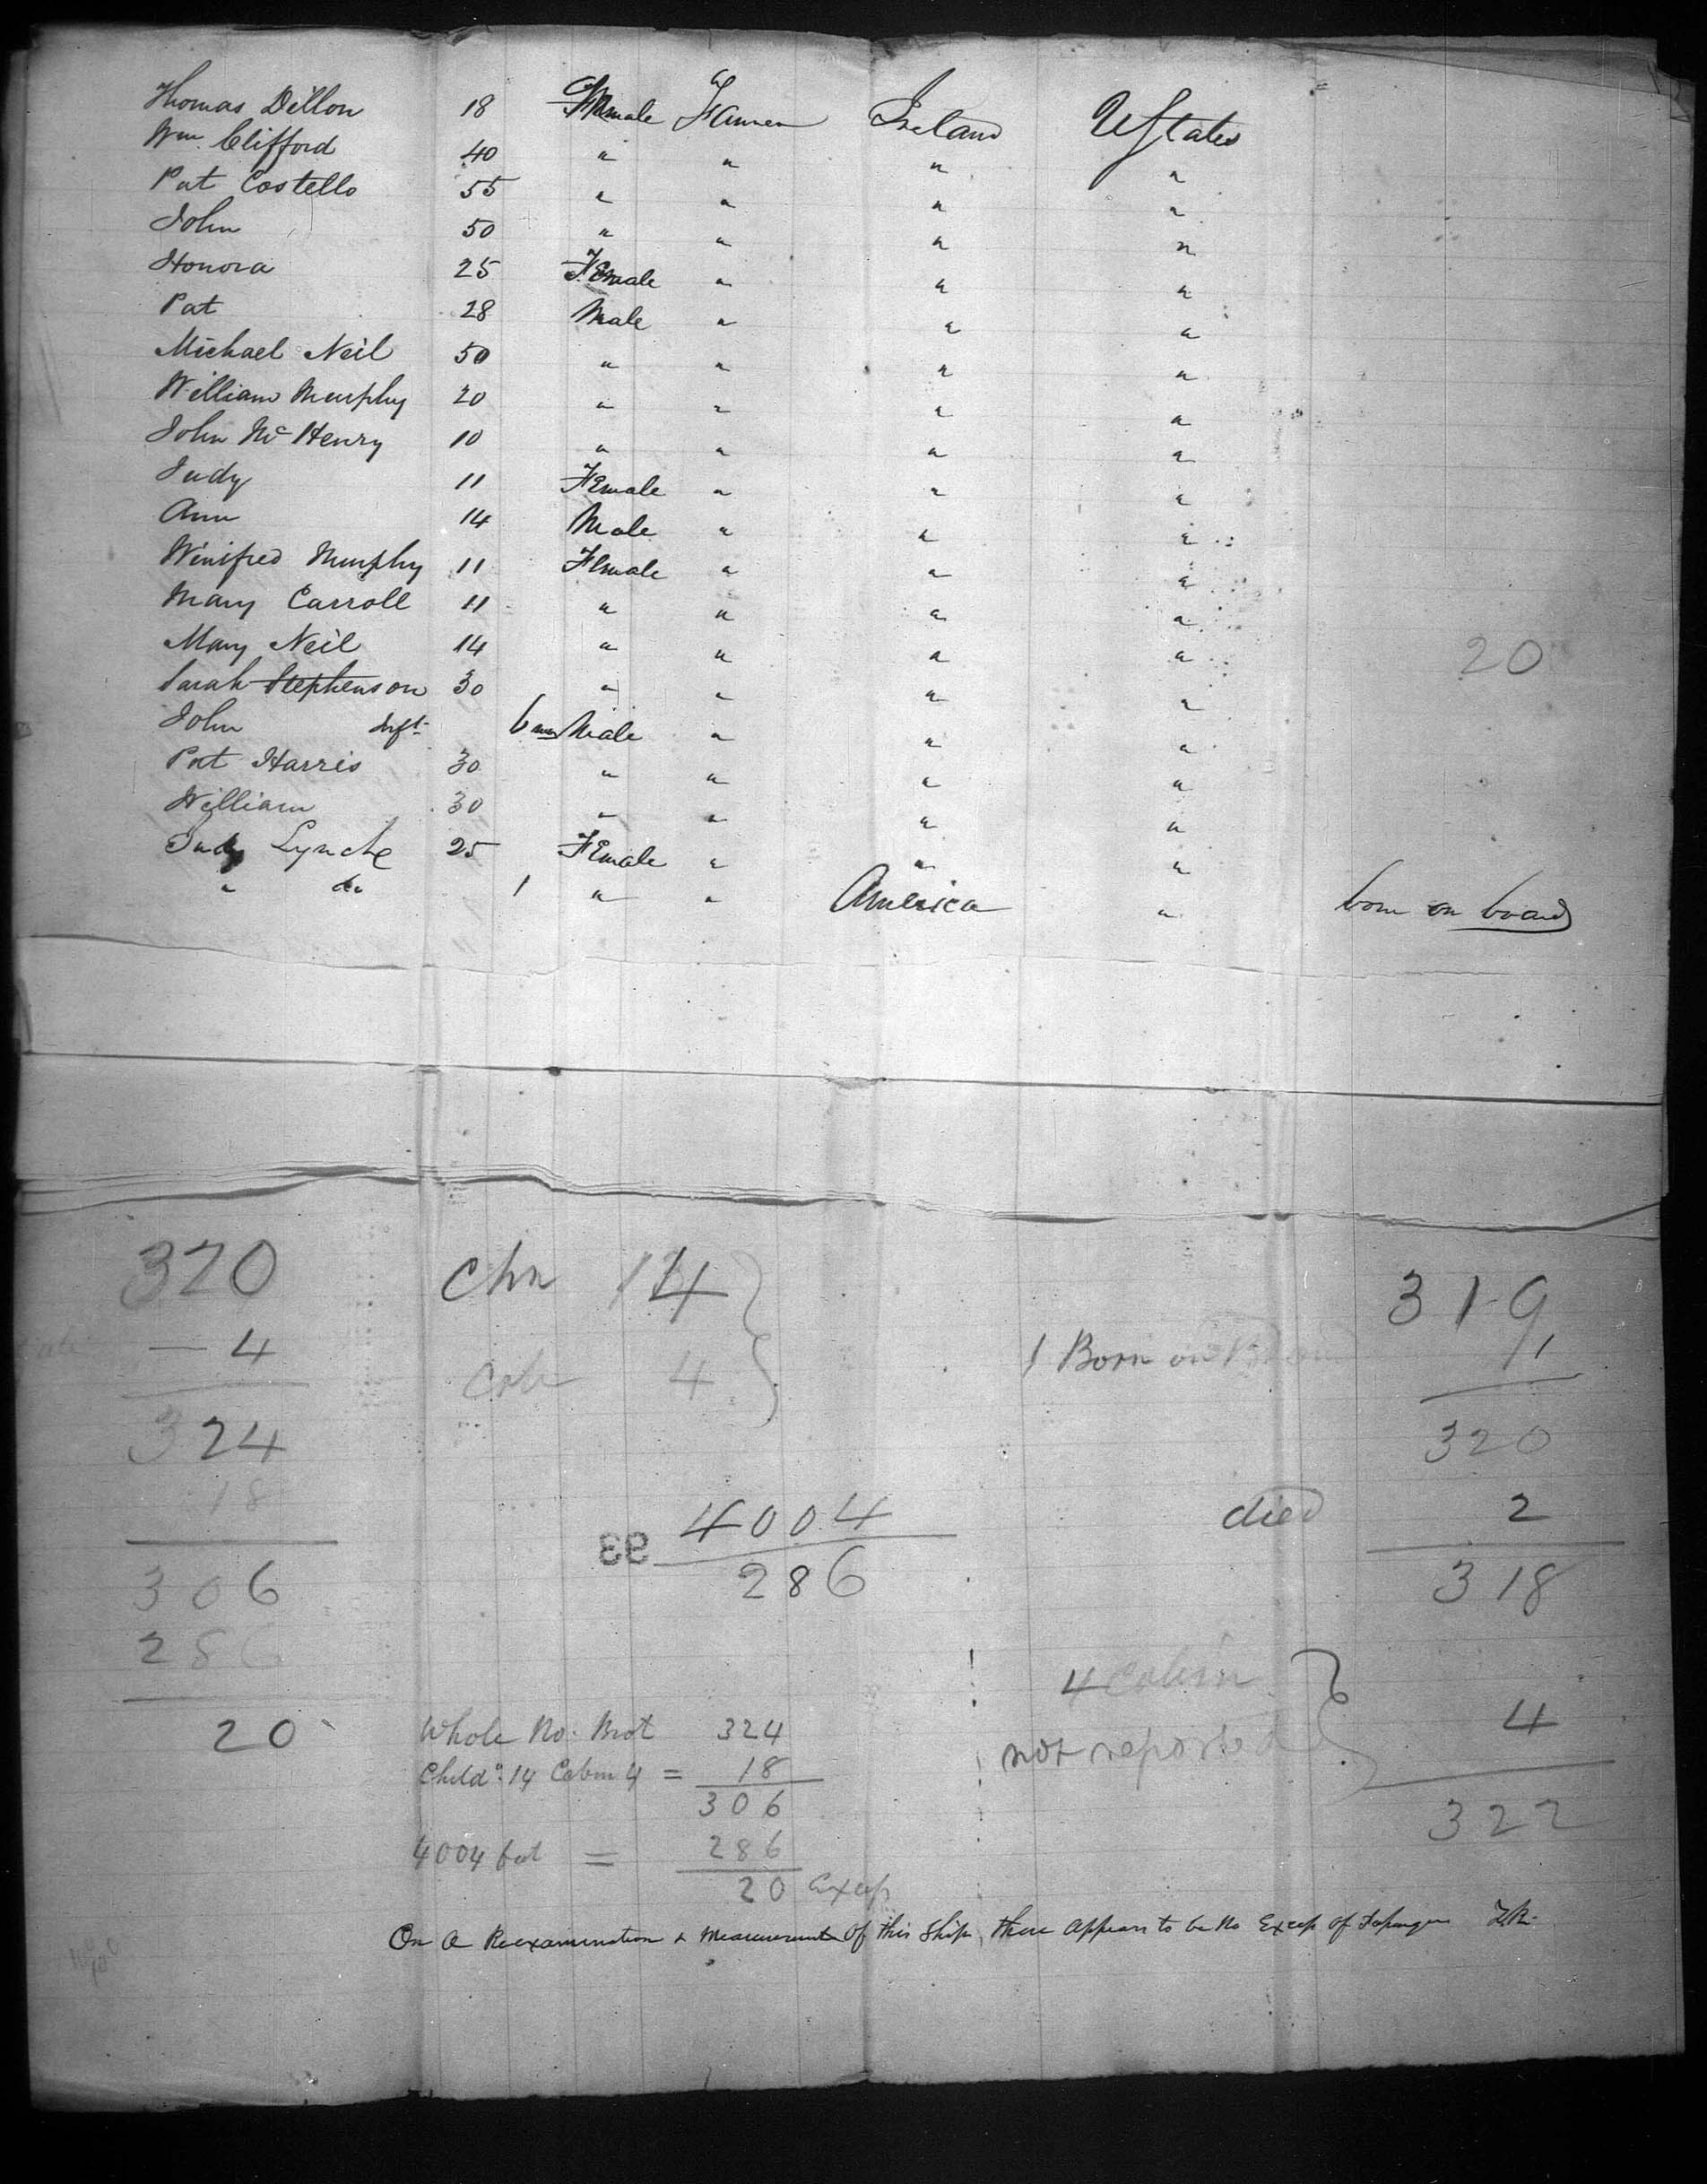 Thomas Dillon 18 Male Farmer Ireland UStates
Wm. Clifford 40 " " " "
Pat Costello 55 " " " "
John 50 " " " "
Honora 25 Female " " "
Pat 28 Male " " "
Michael Neil 50 " " " "
William Murphy 20 " " " "
John Mc Henry 10 " " " "
Judy 11 Female " " "
Ann 14 Male " " "
Winifred Murphy 11 Female " " "
Mary Carroll 11 " " " "
Mary Neil 14 " " " "
20
Sarah Stephenson 30 " " " "
John Inft. 6 mos Male " " "
Pat Harris 30 " " " "
William 30 " " " "
Judy Lynch 25 Female " " "
" do 1 " " America " born on board
320 Chn 14 319
4 4 1 Born on 1
324 320
18
4004 died 2
93
306 286 318
286 4 Cabin
20 Whole No. Brot 324 not reported 4
Childn. 14 Cabin 4 = 18
306 322
4004 fet = 286
20 Excess
On a Reexamination & Measurement of this Ship, there appears to be no Excess of Passengers